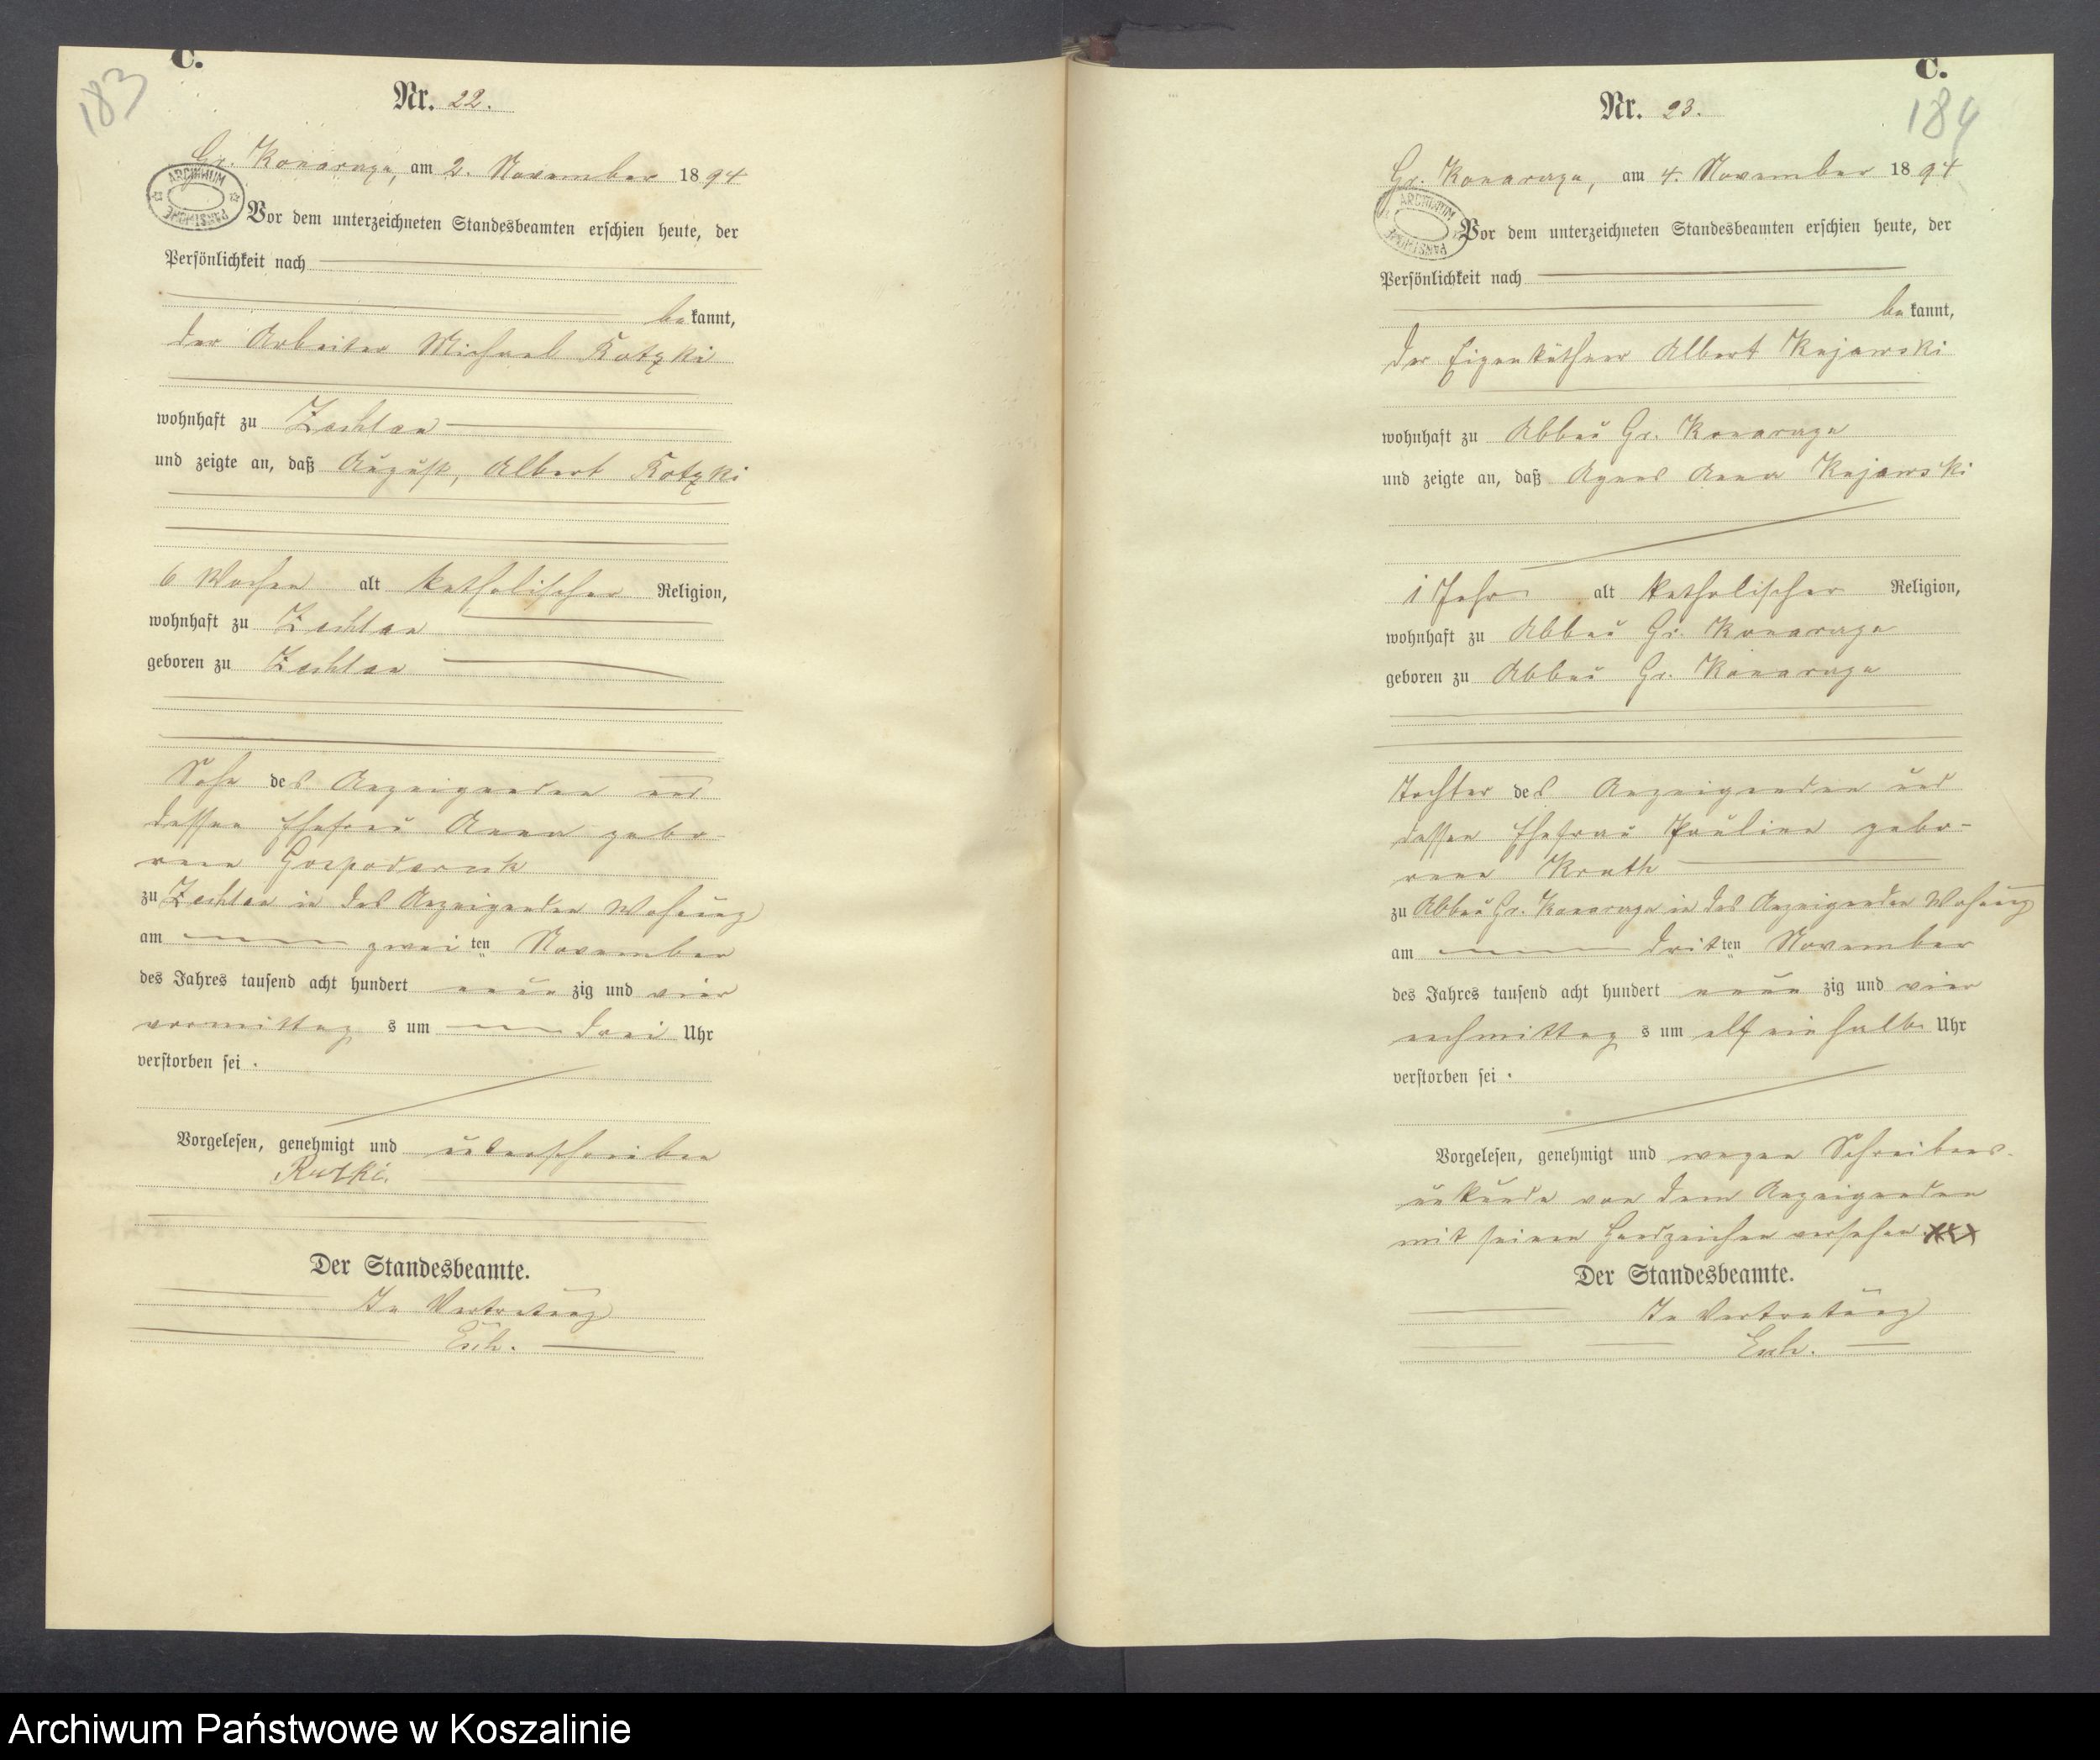 183
C.
Nr. 22.
Gr. Konarzyn, am 2. November 1894
ARCHIWUM
PAŃSTWOWE
Vor dem unterzeichneten Standesbeamten erschien heute, der
Persönlichkeit nach
bekannt,
der Arbeiter Michael
wohnhaft zu
und zeigte an, daß August, Albert
6 Wochen alt katholischer Religion,
wohnhaft zu
geboren zu
Sohn des Anzeigenden und
dessen Ehefrau Anna gebo-
rene
zu in des Anzeigenden Wohnung
am zweiten November
des Jahres tausend acht hundert neunzig und vier
vormittags um drei Uhr
verstorben sei.
Vorgelesen, genehmigt und unterschrieben
Der Standesbeamte.
In Vertretung
C.
184
Nr. 23.
Gr. Konarzyn, am 4. November 1894
ARCHIWUM
PAŃSTWOWE
Vor dem unterzeichneten Standesbeamten erschien heute, der
Persönlichkeit nach
bekannt,
der Eigenkäthner Albert Kujawski
wohnhaft zu Abbau Gr. Konarzyn
und zeigte an, daß Agnes Anna Kujawski
1 Jahr alt katholischer Religion,
wohnhaft zu Abbau Gr. Konarzyn
geboren zu Abbau Gr. Konarzyn
Tochter des Anzeigenden und
dessen Ehefrau Pauline gebo-
rene
zu Abbau Gr. Konarzyn in des Anzeigenden Wohnung
am dritten November
des Jahres tausend acht hundert neunzig und vier
nachmittags um elf ein halb Uhr
verstorben sei.
Vorgelesen, genehmigt und wegen Schreibens-
unkunde von dem Anzeigenden
mit seinen Handzeichen versehen xxx
Der Standesbeamte.
In Vertretung
Archiwum Państwowe w Koszalinie